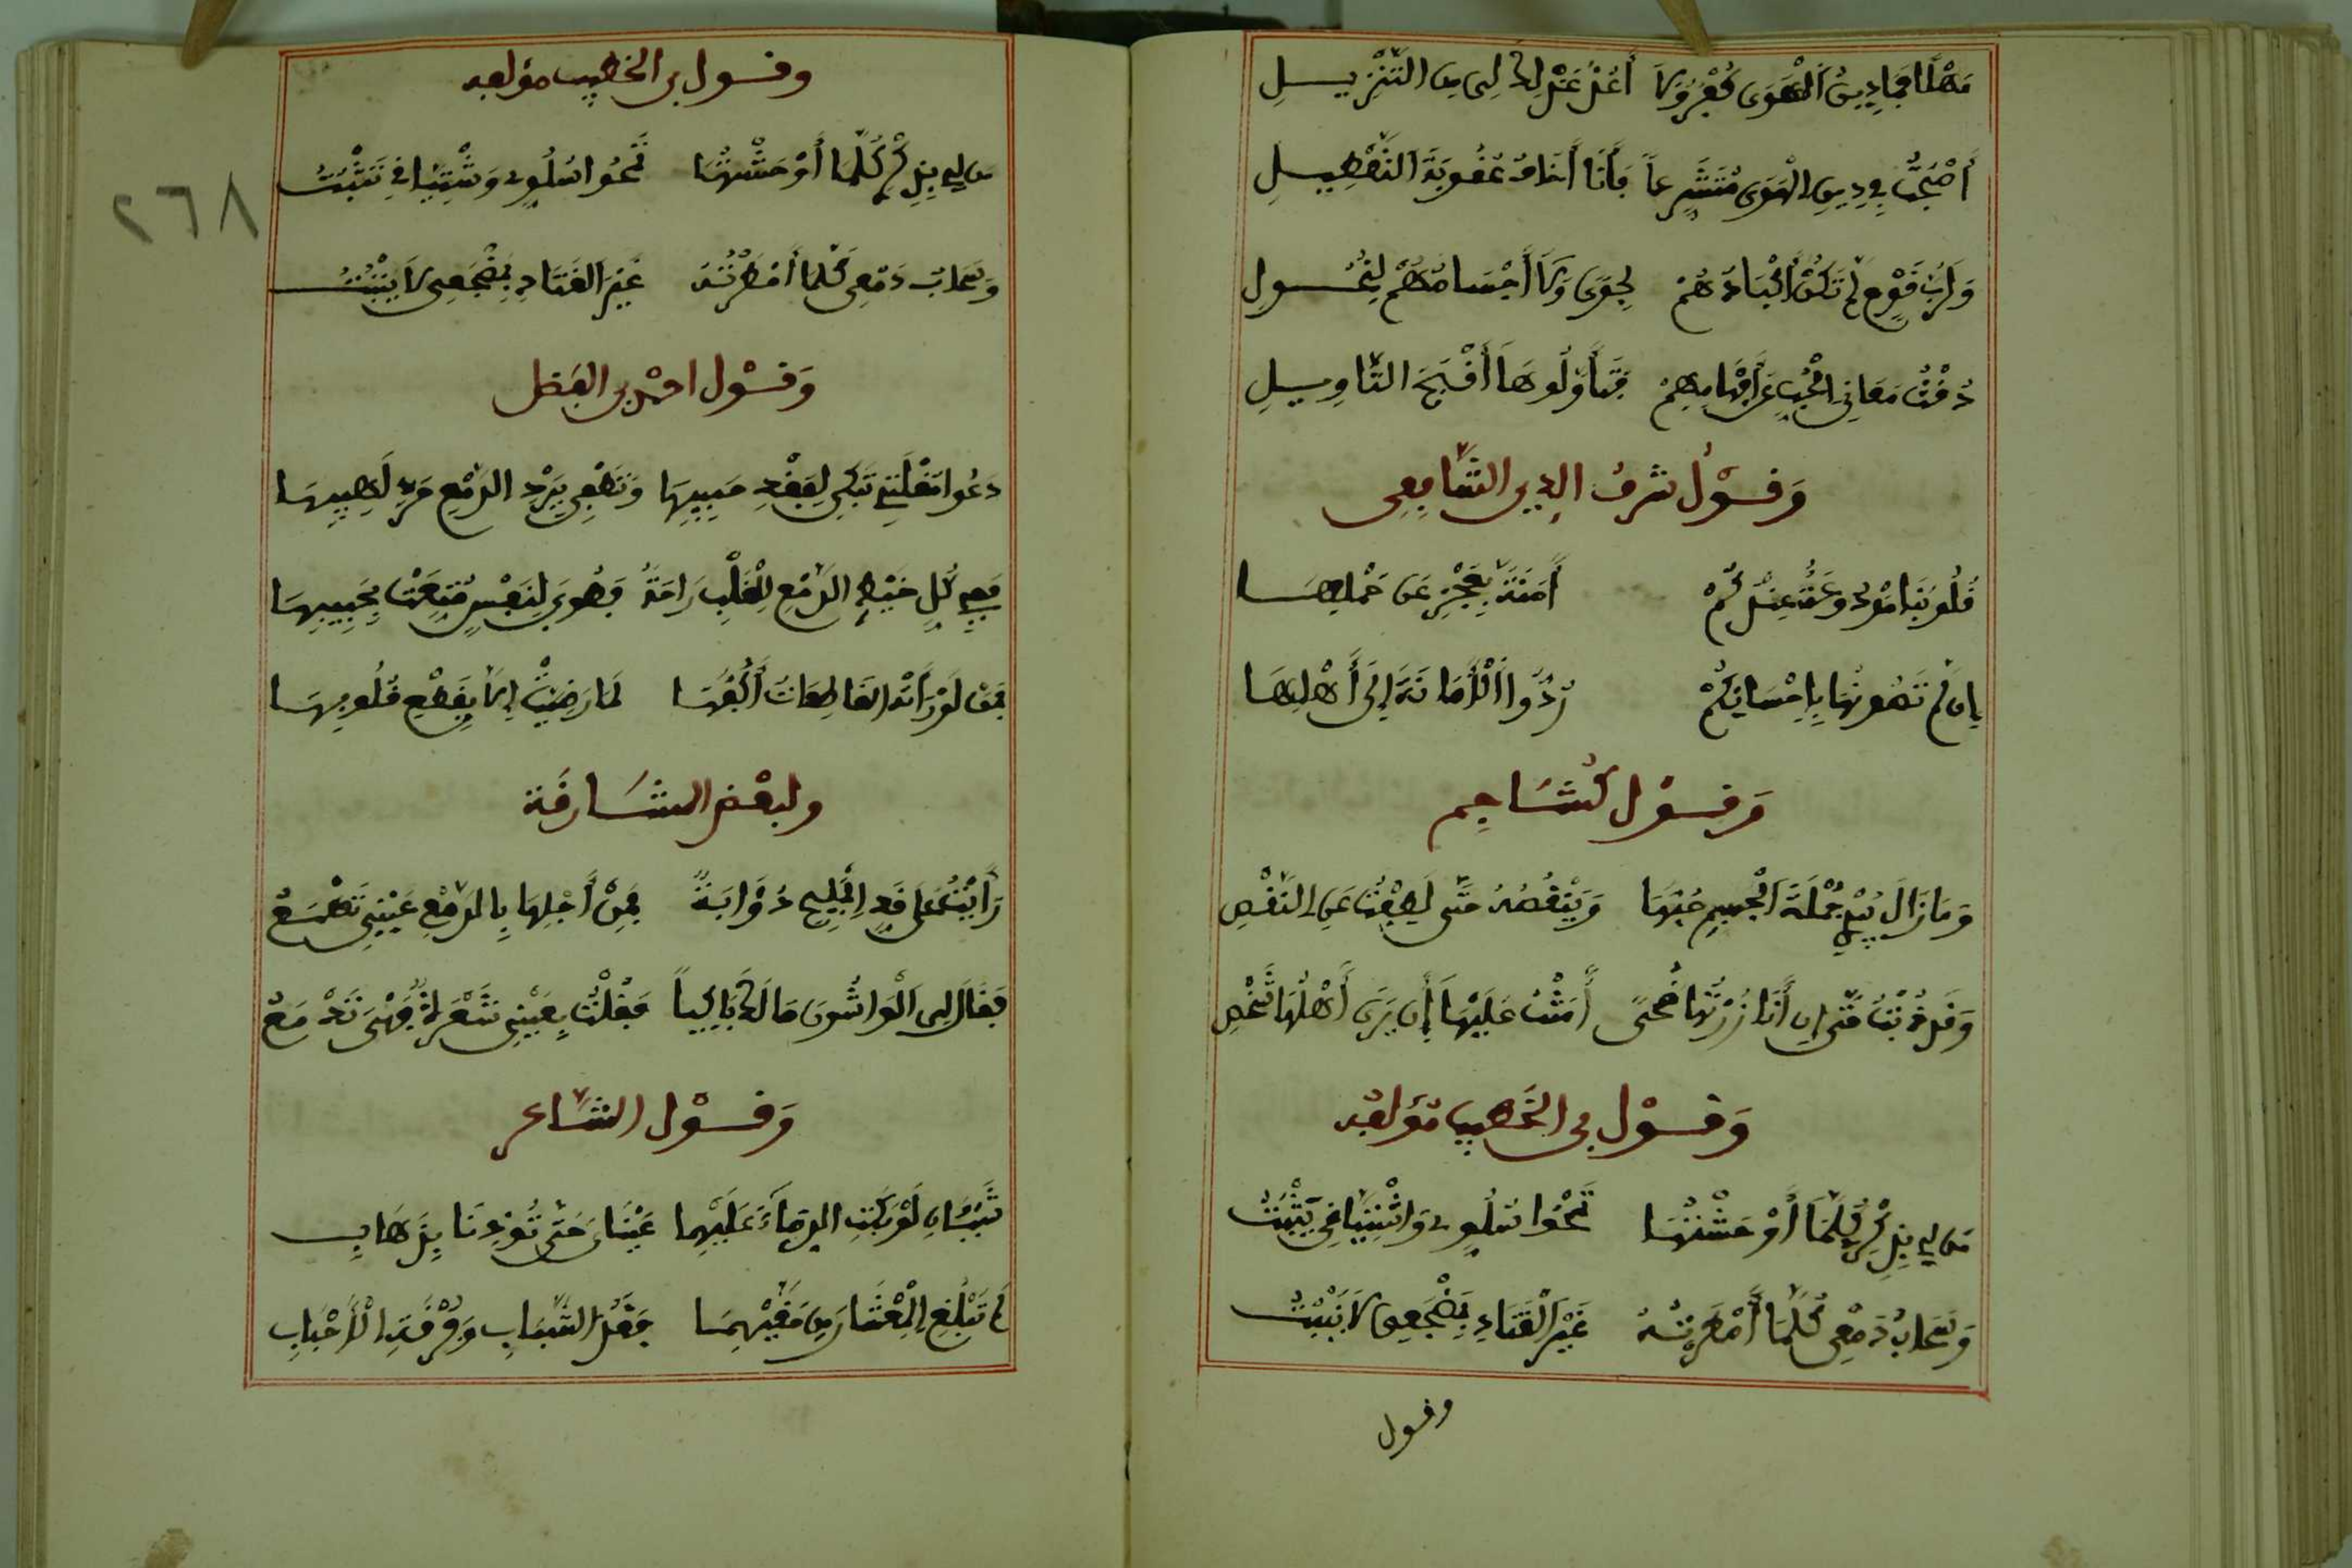 مَهْلًا فَمَا دِينُ الْهَوَى كُفْرٌ وَلَا أَعْتَدُّ عَذْلَكَ لِي مِنَ التَّنْزِيلِ
أَضْحَى فِي دِينِ الْهَوَى مُتَشَرِّعاً وَأَنَا أَخَافُ عُقُوبَةَ التَّعْطِيلِ
وَلَرُبَّ قَوْمٍ لَمْ تَكُنْ أَكْبَادُهُمْ لِجَوًى وَلَا أَجْسَامُهُمْ لِنُحُولِ
دَقَّتْ مَعَانِي الْحُبِّ عَنْ أَفْهَامِهِمْ فَتَأَوَّلُوهَا أَقْبَحَ التَّأْوِيلِ
وَقَوْلُ شرف الدين الشَّافِعِي
قُلُوبُنَا مُودَعَةٌ عِنْدَكُمْ أَمَانَةً يُعْجَزُ عَنْ حَمْلِهَا
إِن لَمْ تَصُونُهَا بِإِحْسَانِكُمْ رُدُّوا الْأَمَانَةَ إِلَى أَهْلِهَا
وَقَوْل كُشَاجِم
وَمَا زَالَ يَبْرِي جُمْلَةَ الْجِسْمِ حُبُّهَا وَيَنْقُصُهُ حَتَّى لَطِفْتُ عَنِ النَّقْصِ
وَقَدْ ذُبْتُ حَتَّى إِن أَنَا زُرْتُهَا ضُحًى أَمِنْتُ عَلَيْهَا أَن يَرَى أَهْلُهَا شَخْصِ
وَقَوْل بن الخَطِيب مؤلفه
مَن لِي بِذِكْرٍ كُلَّمَا أَوْحَشْتُهَا نَحْوَ السُّلُوِّ وَاشْتِيَاقِي يَثْبُتُ
وَسَحَابُ دَمْعِي كُلَّمَا أَمْطَرْتُهُ غَيْرَ الْقَتَادِ بِمَضْجَعِي لَا يَنْبُتُ
وقول
وقول بن الخطيب مؤلفه
من لي بِذِكْرٍ كُلَّمَا أَوْحَشْتُهَا نَحْوَ السُّلُوِّ وَشْتِيَاقِي يَثْبُتُ
وَسَحَابُ دَمْعِي كُلَّمَا أَمْطَرْتُهُ غَيْرَ الْقَتَادِ بِمَضْجَعِي لَا يَنْبُتُ
٢٦٨
وَقَوْل احمد بن الفضل
دَعُوا مُقْلَتِي تَبْكِي لِفَقْدِ حَبِيبِهَا وَتُطْفِي بِبَرْدِ الدَّمْعِ حَرَّ لَهِيبِهَا
فَفِي كُلِّ خَيْطِ الدَّمْعِ لِلْقَلْبِ رَاحَةٌ فَطُوبَى لِنَفْسٍ مُتِّعَتْ بِحَبِيبِهَا
بِمَن لَوْ رَأَتْهُ الْقَاطِعَاتُ أَكُفَّهَا لَمَا رَضِيَتْ إِلَّا بِقَطْعِ قُلُوبِهَا
ولبعض المشارقة
رَأَيْتُ عَلَى قَدِّ الْمَلِيحِ ذُؤَابَةً فَمِنْ أَجْلِهَا بِالدَّمْعِ عَيْنِي تَطْمَعُ
فَقَالَ لِي الْوَاشُونَ مَا لَكَ بَاكِياً فَقُلْتُ بِعَيْنِي شَعْرَةٌ فَهْيَ تَدْمَعُ
وَقَوْل الشَّاعر
شَيْئَانِ لَوْ بَكَتِ الدِّمَاءَ عَلَيْهِمَا عَيْنَايَ حَتَّى تُؤْذِنَا بِذَهَابِ
لَمْ تَبْلُغِ الْمِعْشَارَ مِنْ حَقَّيْهِمَا فَقْدُ الشَّبَابِ وَفُرْقَةِ الْأَحْبَابِ